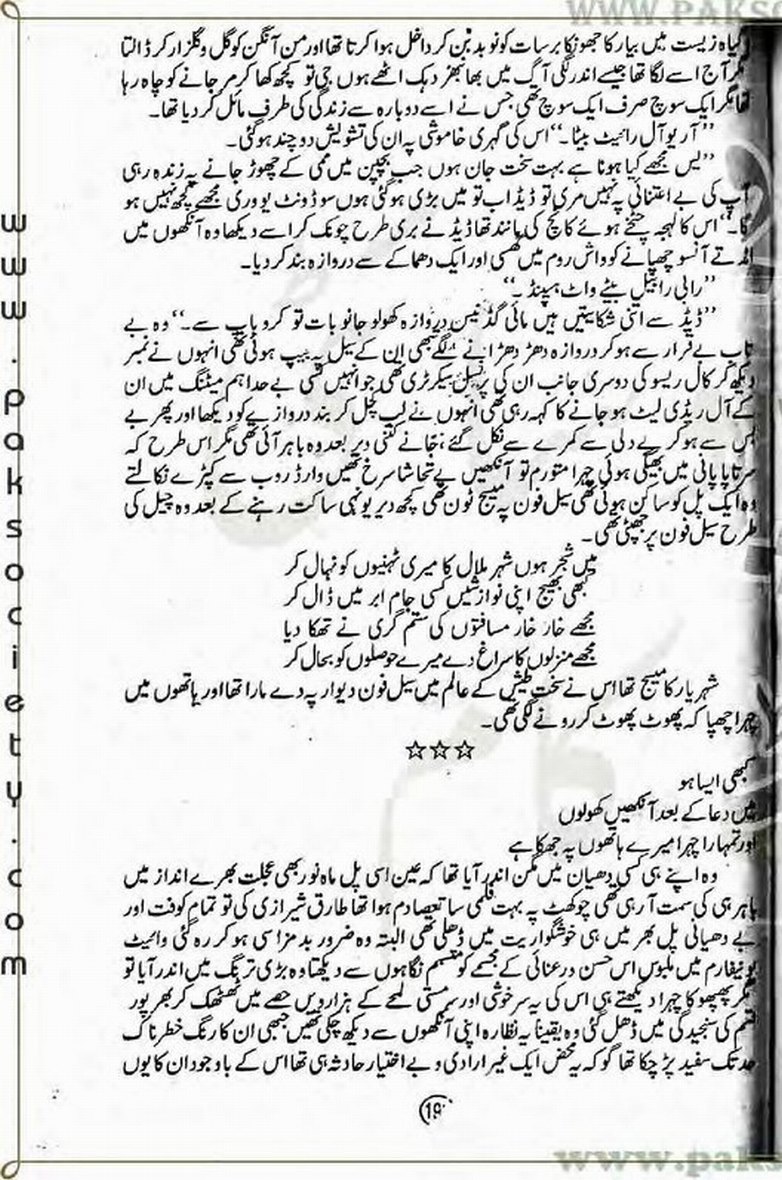 WWW.PAKSO
گیاہ زیست میں پیار کا جھونکا برسات کو نوید بن کر داخل ہوا کرتا تھا اور من آنگن کو گل و گلزار کر ڈالتا
مگر آج اسے لگا تھا جیسے اندر لگی آگ میں بھانبھڑ دہک اٹھے ہوں جی تو کچھ کھا کر مر جانے کو چاہ رہا
تھا مگر ایک سوچ صرف ایک سوچ تھی جس نے اسے دوبارہ سے زندگی کی طرف مائل کر دیا تھا۔
”آر یو آل رائیٹ بیٹا۔“ اس کی گہری خاموشی پہ ان کی تشویش دو چند ہو گئی۔
”یس مجھے کیا ہونا ہے بہت سخت جان ہوں جب بچپن میں ممی کے چھوڑ جانے پہ زندہ رہی
آپ کی بے اعتنائی پہ نہیں مری تو ڈیڈ اب تو میں بڑی ہو گئی ہوں سو ڈونٹ یو وری مجھے کچھ نہیں ہو
گا۔“ اس کا لہجہ چٹخے ہوئے کانچ کی مانند تھا ڈیڈ نے بری طرح چونک کر اسے دیکھا وہ آنکھوں میں
امڈتے آنسو چھپانے کو واش روم میں گھسی اور ایک دھماکے سے دروازہ بند کر دیا۔
”رابی رابیل بیٹے واٹ ہیپنڈ۔“
”ڈیڈ سے اتنی شکایتیں ہیں مائی گڈنیس دروازہ کھولو جانو بات تو کرو باپ سے۔“ وہ بے
تاب بے قرار سے ہو کر دروازہ دھڑ دھڑانے لگے تبھی ان کے سیل پہ بیپ ہوئی تھی انہوں نے نمبر
دیکھ کر کال ریسو کی دوسری جانب ان کی پرسنل سیکرٹری تھی جو انہیں کسی بے حد اہم میٹنگ میں ان
کے آل ریڈی لیٹ ہو جانے کا کہہ رہی تھی انہوں نے لب کچل کر بند دروازے کو دیکھا اور پھر بے
بس سے ہو کر بے دلی سے کمرے سے نکل گئے، جانے کتنی دیر بعد وہ باہر آئی تھی مگر اس طرح کہ
سرتاپا پانی میں بھیگی ہوئی چہرا متورم تو آنکھیں بے تحاشا سرخ تھیں وارڈ روب سے کپڑے نکالتے
وہ ایک پل کو ساکن ہوئی تھی سیل فون پہ میسج ٹون تھی کچھ دیر یونہی ساکت رہنے کے بعد وہ چیل کی
طرح سیل فون پر جھپٹی تھی۔
میں شجر ہوں شہر ملال کا میری ٹہنیوں کو نہال کر
کبھی بھیج اپنی نوازشیں کسی جام ابر میں ڈال کر
مجھے خار خار مسافتوں کی ستم گری نے تھکا دیا
مجھے منزلوں کا سراغ دے میرے حوصلوں کو بحال کر
شہریار کا میسج تھا اس نے سخت طیش کے عالم میں سیل فون دیوار پہ دے مارا تھا اور ہاتھوں میں
چہرا چھپا کہ پھوٹ پھوٹ کر رونے لگی تھی۔
☆☆☆
کبھی ایسا ہو
میں دعا کے بعد آنکھیں کھولوں
اور تمہارا چہرا میرے ہاتھوں پہ جھکا ہے
وہ اپنے ہی کسی دھیان میں مگن اندر آیا تھا کہ عین اسی پل ماہ نور بھی عجلت بھرے انداز میں
باہر ہی کی سمت آ رہی تھی چوکھٹ پہ بہت فلمی سا تصادم ہوا تھا طارق شیرازی کی تو تمام کوفت اور
بے دھیانی پل بھر میں ہی خوشگواریت میں ڈھلی تھی البتہ وہ ضرور بد مزا سی ہو کر رہ گئی وائیٹ
یونیفارم میں ملبوس اس حسن در عنائی کے مجسمے کو متبسم نگاہوں سے دیکھتا وہ بڑی ترنگ میں اندر آیا تو
مگر پھپھو کا چہرا دیکھتے ہی اس کی یہ سرخوشی اور سرمستی لمحے کے ہزارویں حصے میں ٹھٹھک کر بھرپور
قسم کی سنجیدگی میں ڈھل گئی وہ یقیناً یہ نظارہ اپنی آنکھوں سے دیکھ چکی تھیں جبھی ان کا رنگ خطرناک
حد تک سفید پڑ چکا تھا گو کہ یہ محض ایک غیر ارادی و بے اختیار حادثہ ہی تھا اس کے باوجود ان کا یوں
19
www.paksociety.com
www.paks